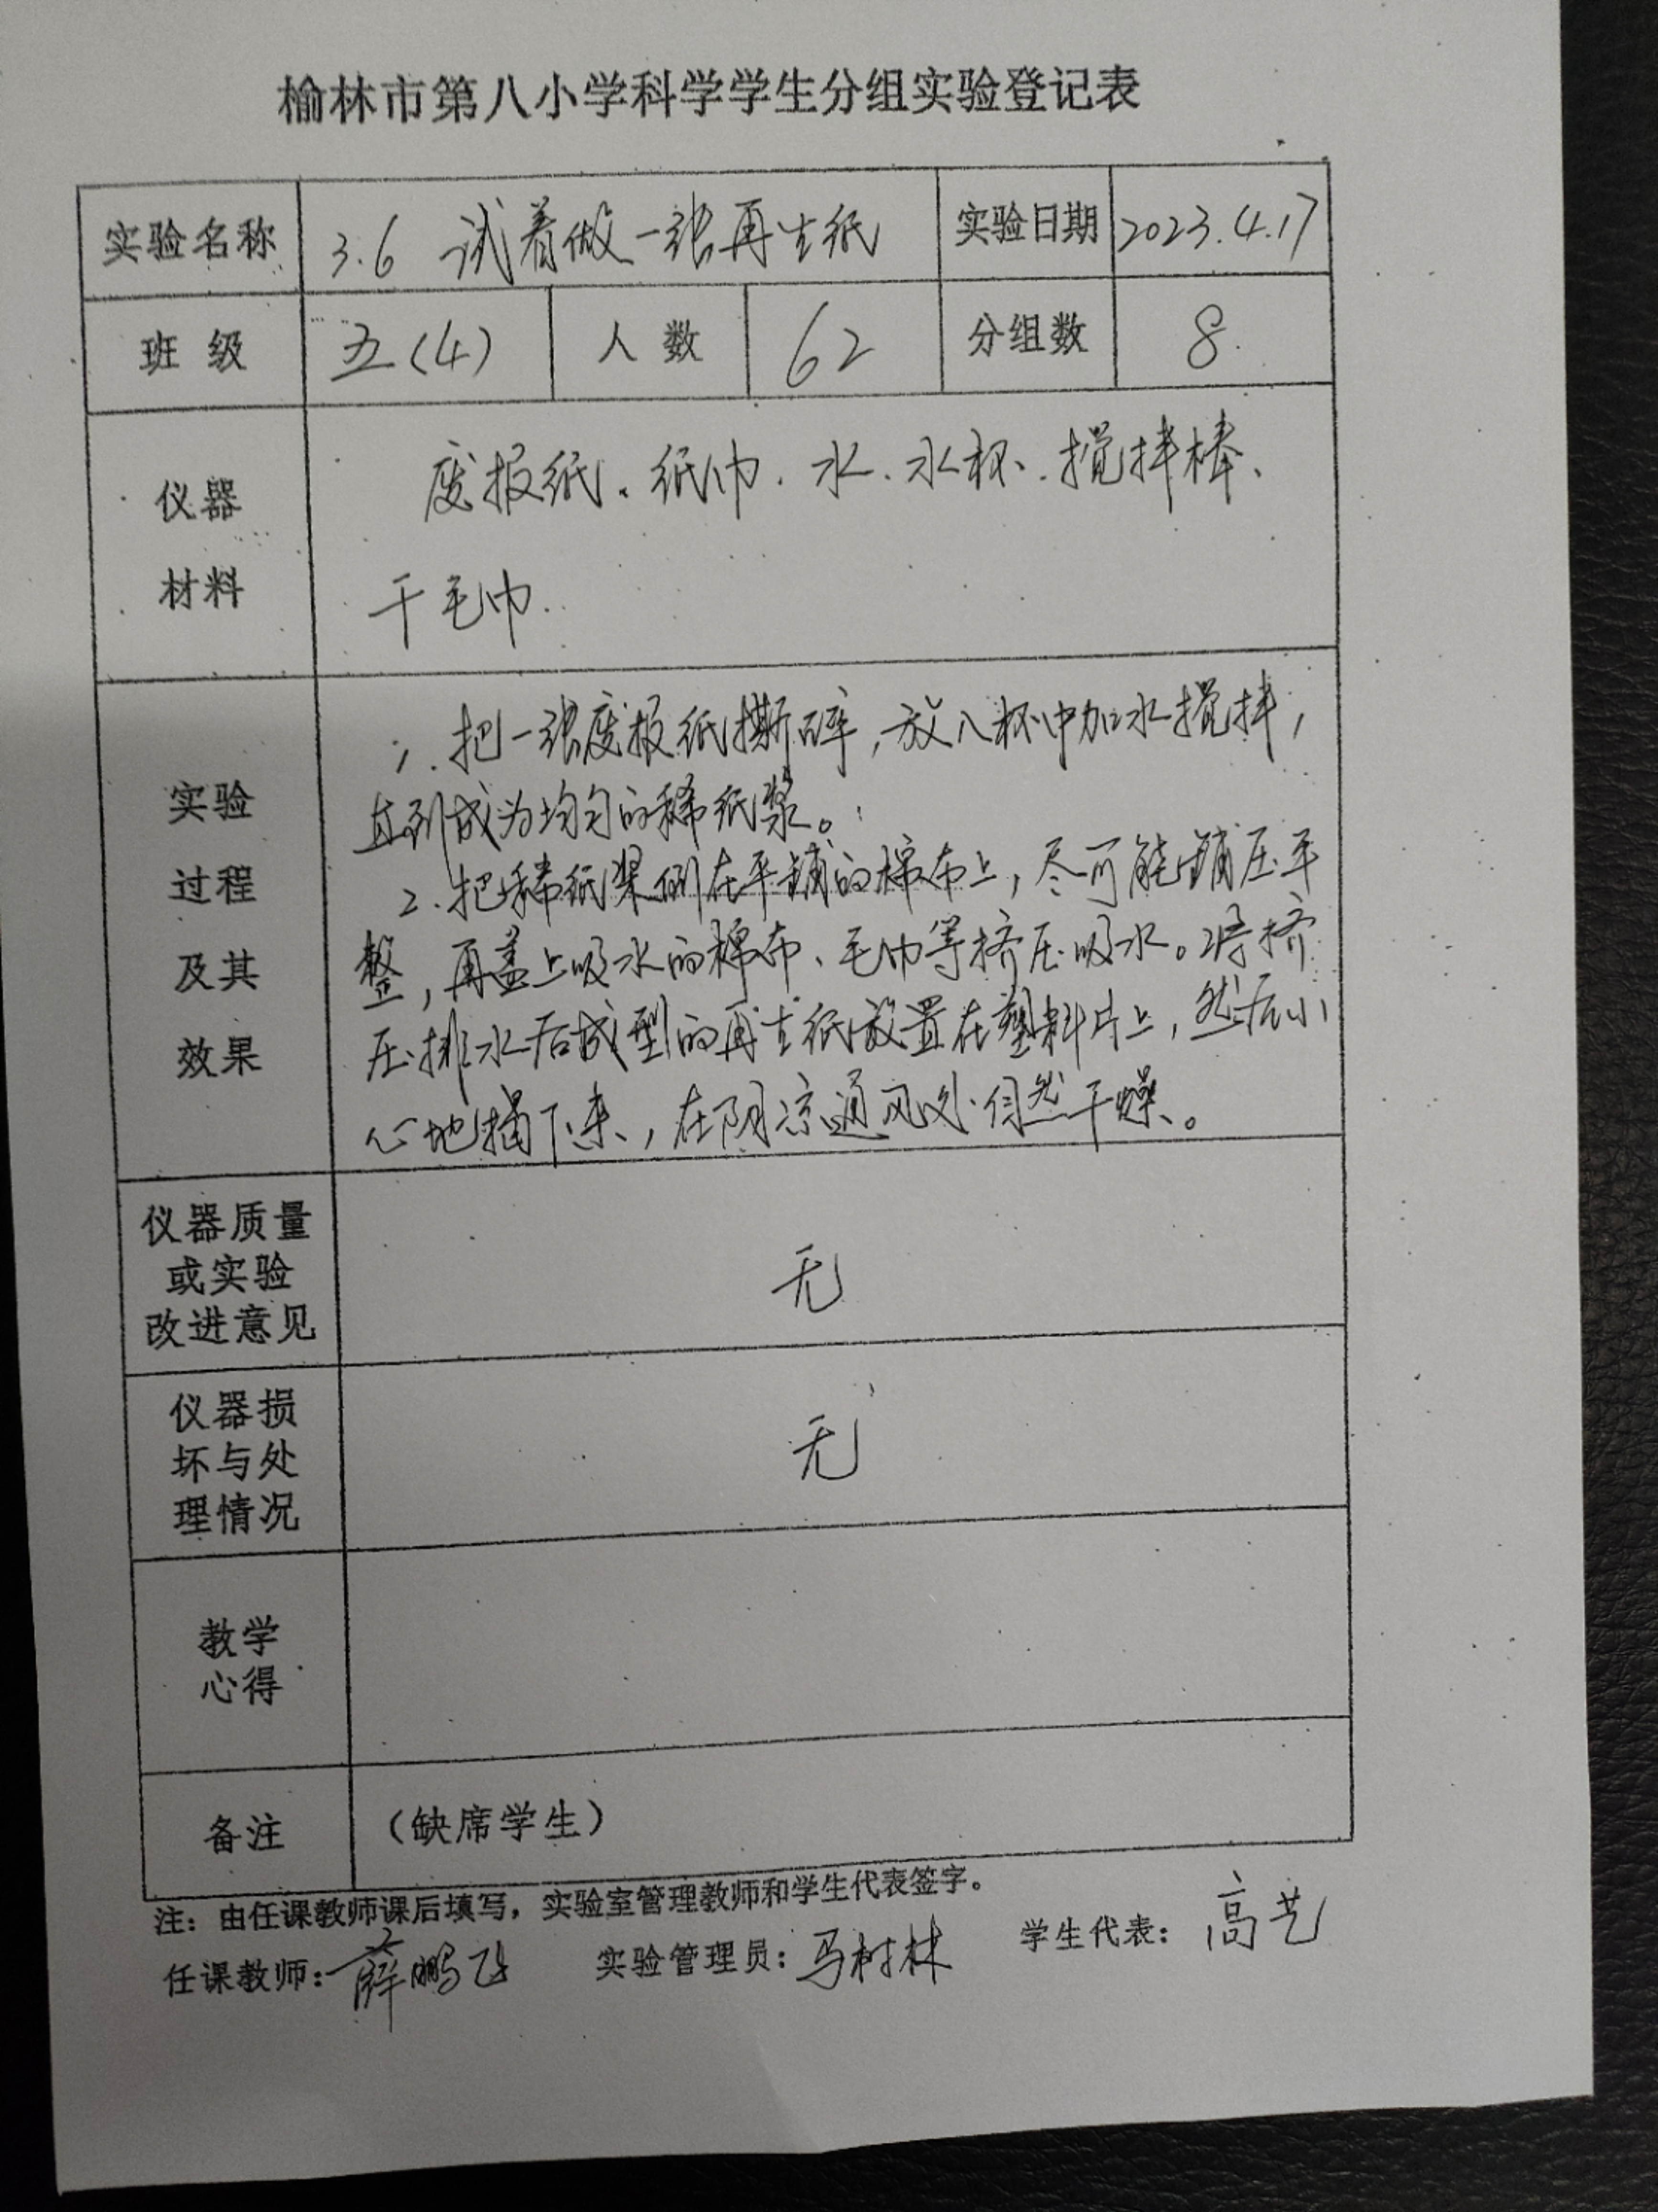 榆林市第八小学科学学生分组实验登记表
实验名称 3.6 试着做一张再生纸 实验日期 2023.4.17
班级 五(4) 人数 62 分组数 8
仪器
材料
废报纸、纸巾、水、水杯、搅拌棒、
干毛巾.
实验
过程
及其
效果
1. 把一张废报纸撕碎,放入杯中加水搅拌,
直到成为均匀的稀纸浆。
2. 把稀纸浆倒在平铺的棉布上,尽可能铺压平
整,再盖上吸水的棉布、毛巾等挤压吸水。将挤
压排水后成型的再生纸放置在塑料片上,然后小
心地揭下来,在阴凉通风处自然干燥。
仪器质量
或实验
改进意见
无
仪器损
坏与处
理情况
无
教学
心得
备注 (缺席学生)
注:由任课教师课后填写,实验室管理教师和学生代表签字。
任课教师:薛鹏飞 实验管理员:马树林 学生代表:高艺